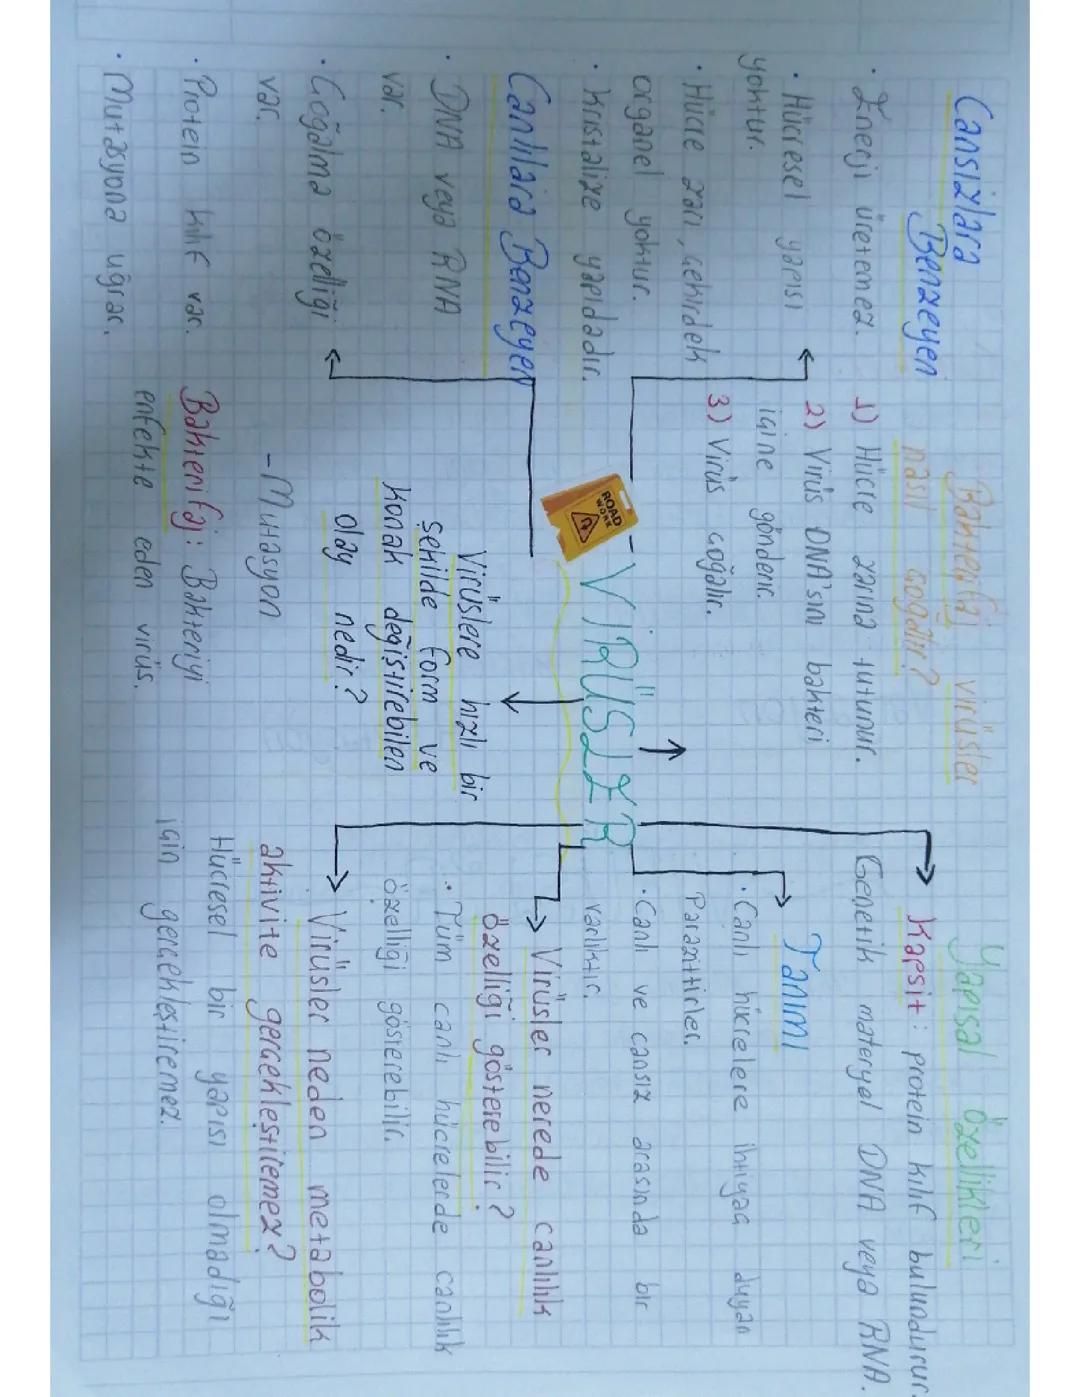 Cansızlara
Benzeyen
· Enerji üretemez.
· Hücresel yapısı
yoktur.
· Hücre zarı, çekirdek
organel yoktur.
· Kristalize yapıdadır.
Canlılara Benzeyen
· DNA veya RNA
var.
· Çoğalma özelliği
var.
· Protein kılıf var.
· Mutasyona uğrar.
Bakterifaj virüsler
nasıl çoğalır?
1) Hücre zarına tutunur.
2) Virüs DNA'sını bakteri
içine gönderir.
3) Virüs çoğalır.
ROAD
WORK
VİRÜSLER
Virüslere hızlı bir
şekilde form ve
konak değiştirebilen
olay nedir?
- Mutasyon
Bakterifaj: Bakteriyi
enfekte eden virüs.
Yapısal Özellikleri
Kapsit: protein kılıf bulundurur.
Genetik materyal DNA veya RNA.
Tanımı
· Canlı hücrelere ihtiyaç duyan
Parazittirler.
· Canlı ve cansız arasında bir
varlıktır.
Virüsler nerede canlılık
özelliği gösterebilir?
· Tüm canlı hücrelerde canlılık
özelliği gösterebilir.
Virüsler neden metabolik
aktivite gerçekleştiremez?
Hücresel bir yapısı olmadığı
için gerçekleştiremez.